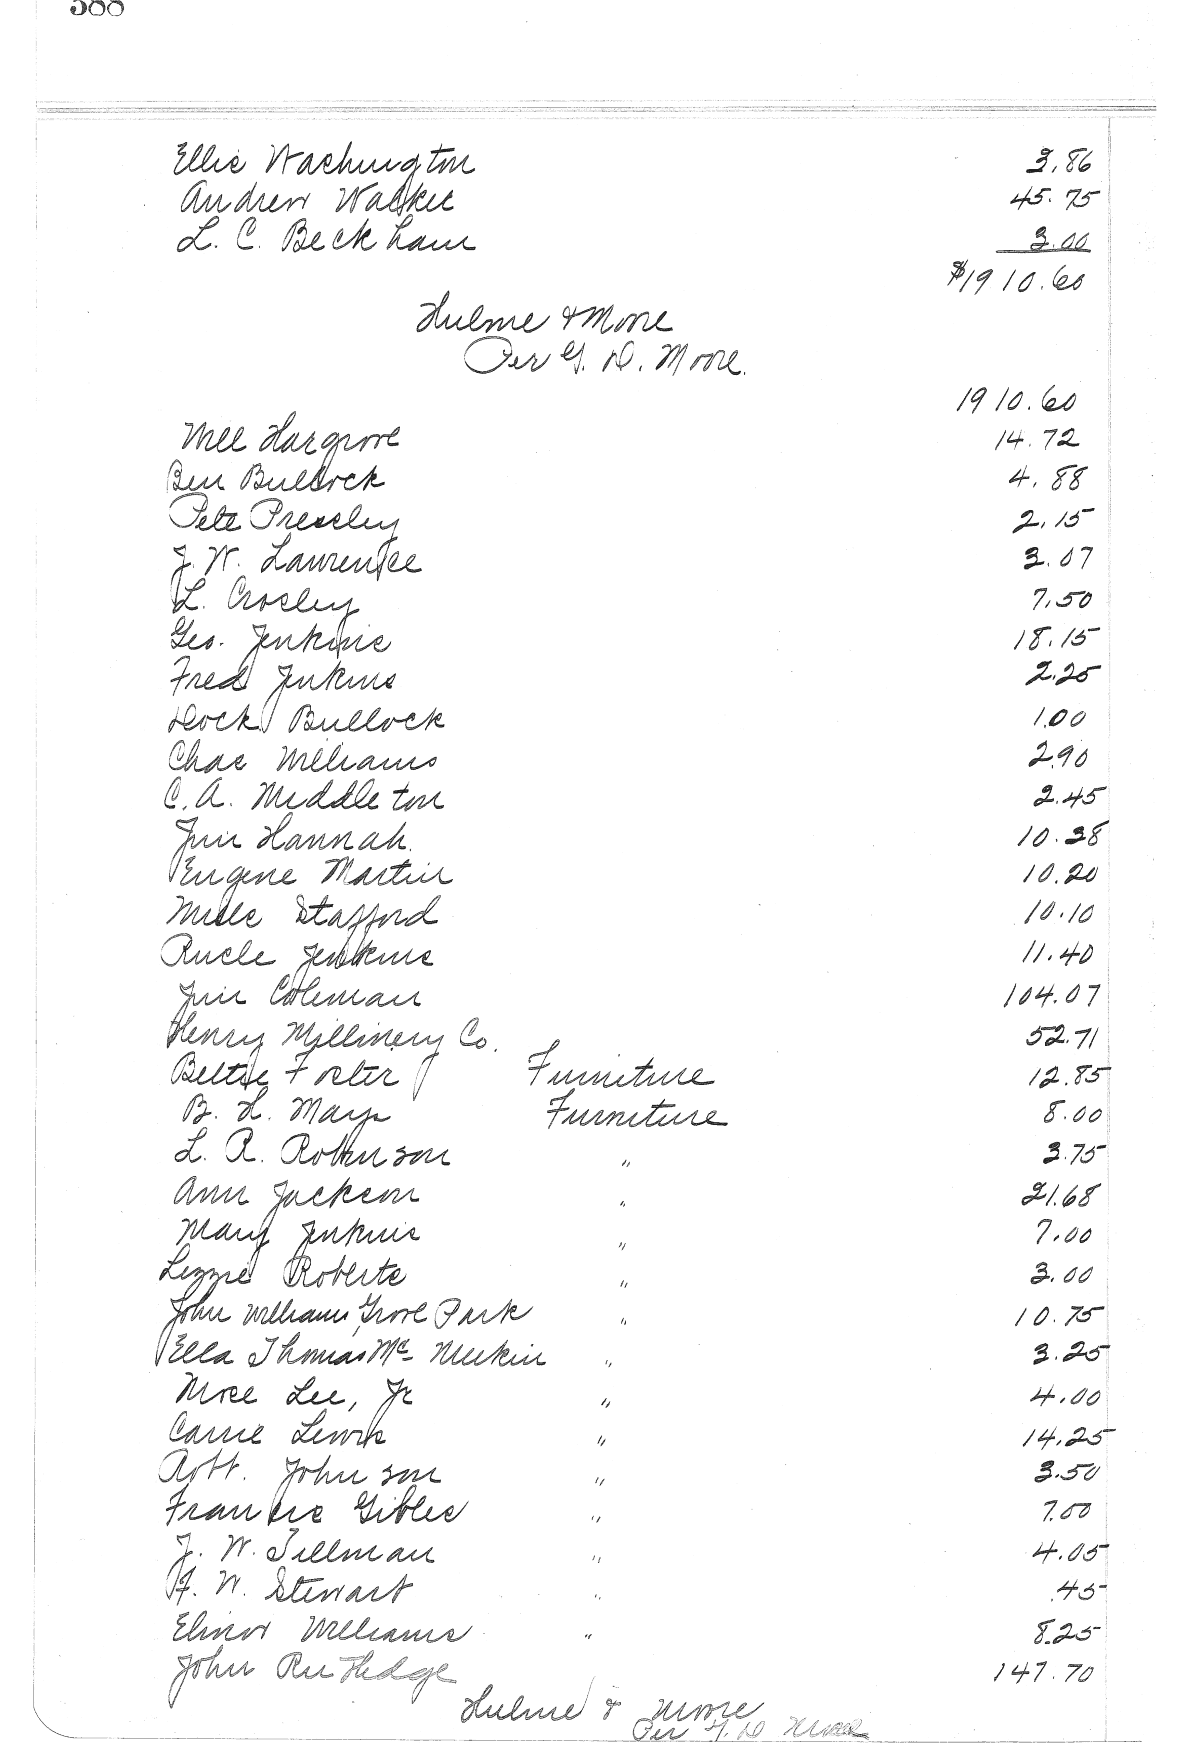 388
Ellis Washington 3.86
Andrew Walker 45.75
L. C. Beckham 3.00
$1910.60
Hulme & Moore
Per G. D. Moore.
1910.60
Will Hargrove 14.72
Ben Bullock 4.88
Pete Pressley 2.15
J. W. Lawrence 3.07
L. Crosley 7.50
Geo. Jenkins 18.15
Fred Jenkins 2.25
Dock Bullock 1.00
Chas Williams 2.90
C. A. Middleton 2.45
Jim Hannah. 10.38
Eugene Martin 10.20
Stafford 10.10
Jenkins 11.40
Jim Coleman 104.07
Henry Millinery Co. 52.71
Bettie Foster Furniture 12.85
B. L. Mays Furniture 8.00
L. R. Robinson " 3.75
Ann Jackson " 21.68
Mary Jenkins " 7.00
Lizzie Roberts " 3.00
John Williams, Grove Park " 10.75
Ella Thomas Mc Meekin " 3.25
Mose Lee, Jr " 4.00
Carrie Lewis " 14.25
Robt. Johnson " 3.50
Francis Gibbes " 7.00
J. W. Tillman " 4.05
W. Stewart " .45
Elinor Williams " 8.25
John Rutledge 147.70
Hulme & Moore
Per G. D. Moore